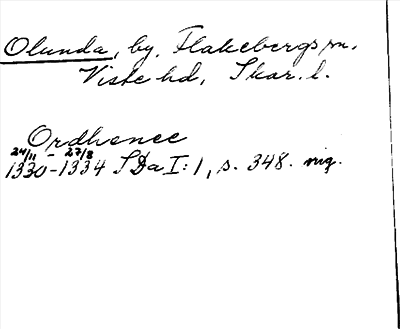 Olunda, by, Flakebergs sn.
Viste hd, Skar. l.
Ordhence
24/11 - 27/8
1330-1334 SDa I:1, s. 348. mig.